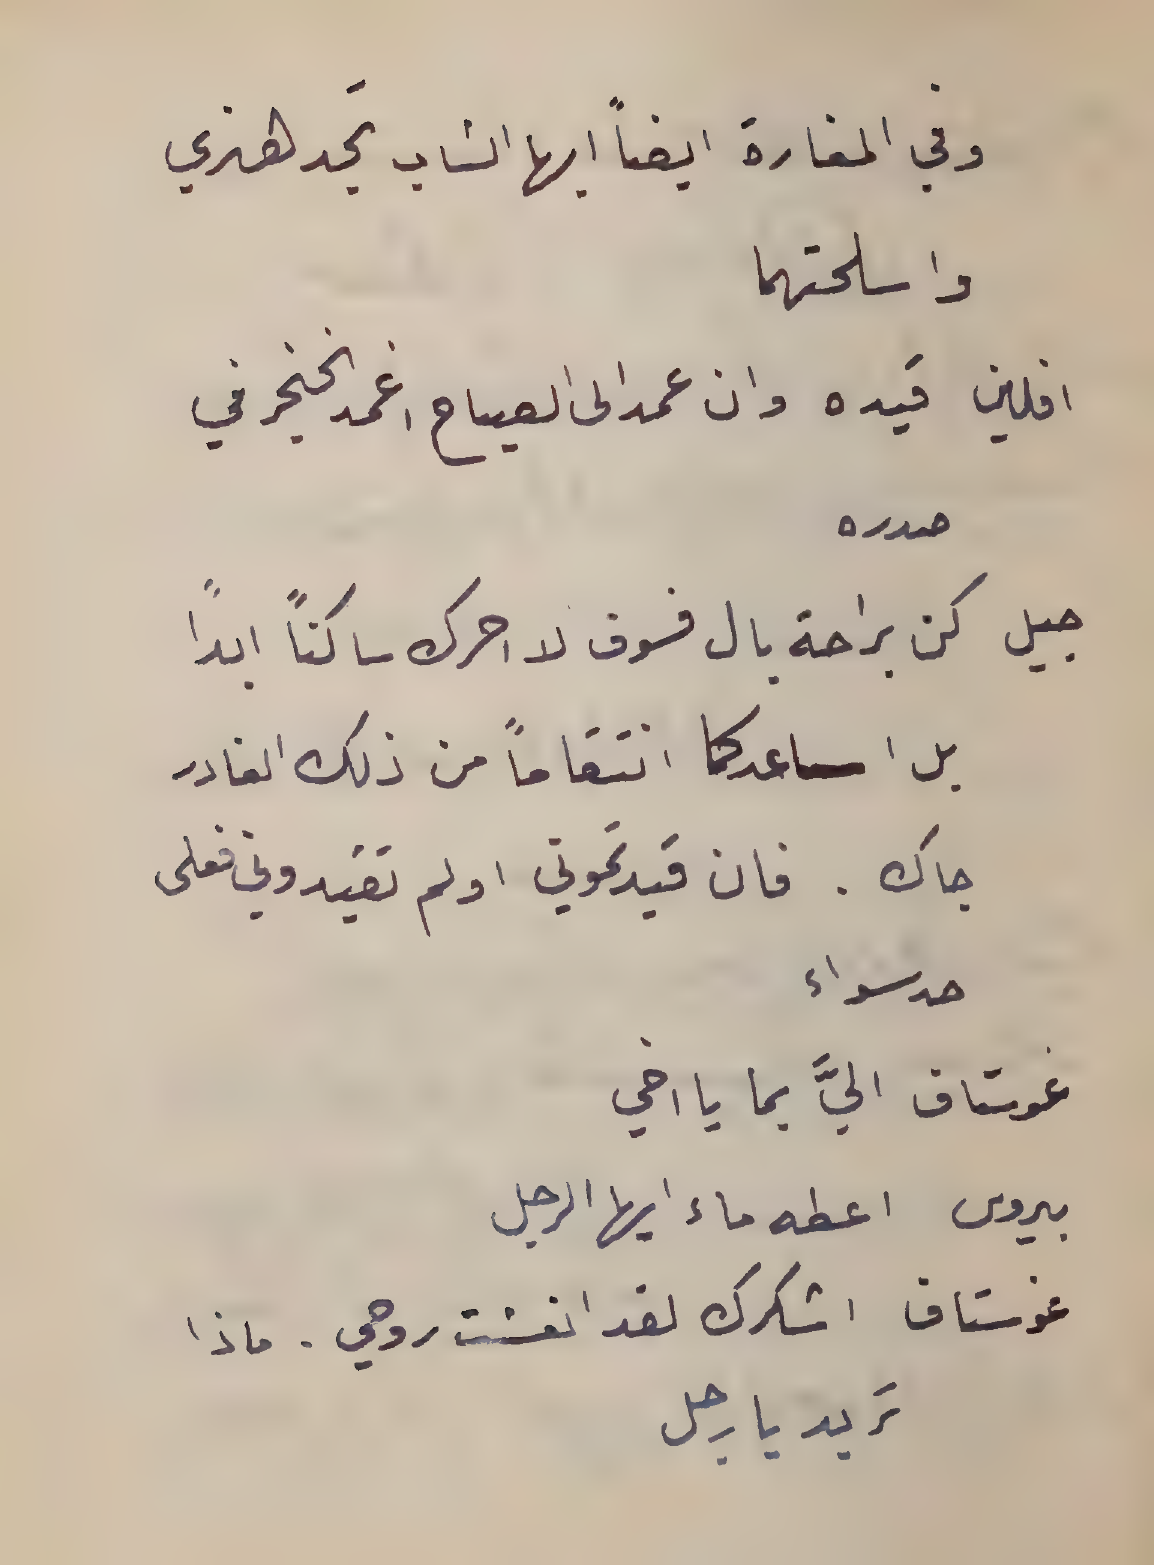 وفي المغارة ايضاً ايها الشاب تجد هنري
واسلحتهما
افلين قيده وان عمد الى الصياح اغمد الخنجر في
صدره
جيل كن براحة بال فسوف لا احرك ساكناً ابداً
بل اساعدكما انتقاماً من ذلك الغادر
جاك . فان قيدتموني او لم تقيدوني فعلى
حد سواء
غوستاف اليَّ بما يا اخي
بيروس اعطه ماء ايها الرجل
غوستاف اشكرك لقد انعشت روحي . ماذا
تريد يا رجل